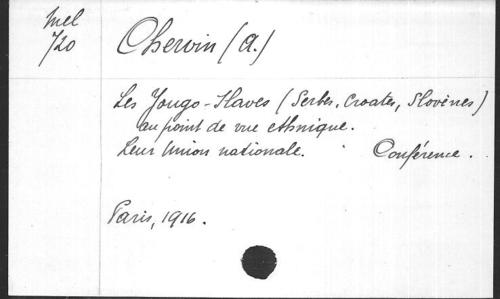 Mel
720
Chervin (A.)
Les Yougo-Slaves (Serbes, Croates, Slovènes)
au point de vue ethnique.
Leur Union nationale. Conférence.
Paris, 1916.